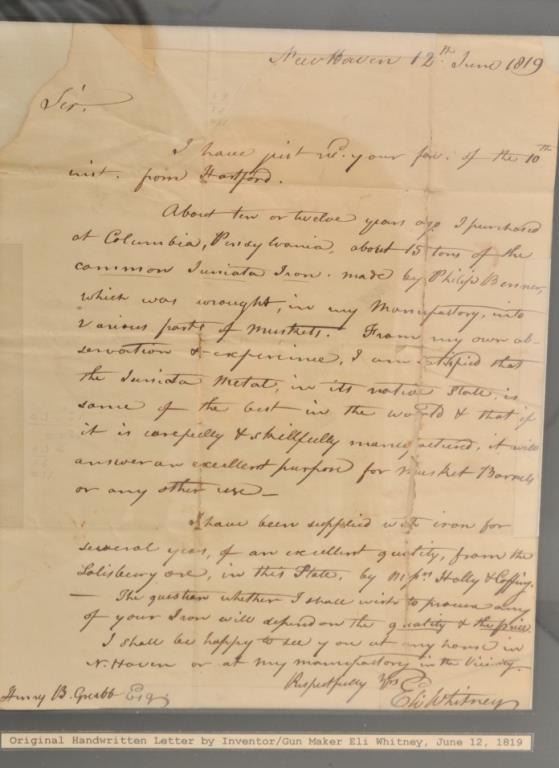 New Haven 12th June 1819
Sir.
I have just recd. your fav. of the 10th
inst. from Hartford.
About ten or twelve years ago I purchased
at Columbia, Pensylvania, about 15 tons of the
common Juniata Iron. made by Philip Benner,
which was wrought, in my Manufactory, into
various parts of Muskets. From my own ob-
servation & experience, I am satisfied that
the Juniata Metal, in its native State, is
some of the best in the world & that if
it is carefully & skillfully manufactured, it will
answer an excellent purpose for Musket Barrels
or any other use—
I have been supplied with iron for
several years, of an excellent quality, from the
Salisbury ore, in this State, by Messrs Holly & Coffing.
— The question whether I shall wish to procure any
of your Iron will depend on the quality & the price.
I shall be happy to see you at my house in
N. Haven or at my manufactory in the Vicinity.
Respectfully Yrs
Eli Whitney
Henry B. Grubb Esq
Original Handwritten Letter by Inventor/Gun Maker Eli Whitney, June 12, 1819